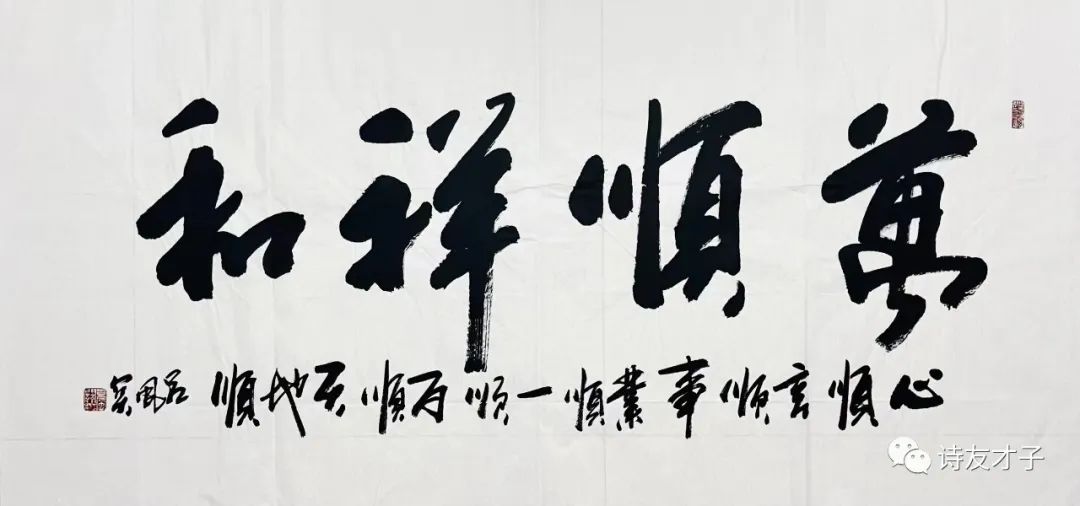 萬順祥和
心順言順事業順一順百順天地順
诗友才子